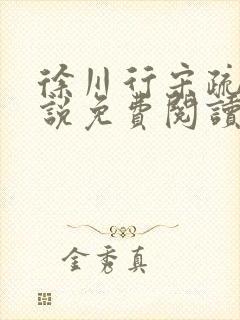 徐川行宋疏
說免費閱讀
金秀真